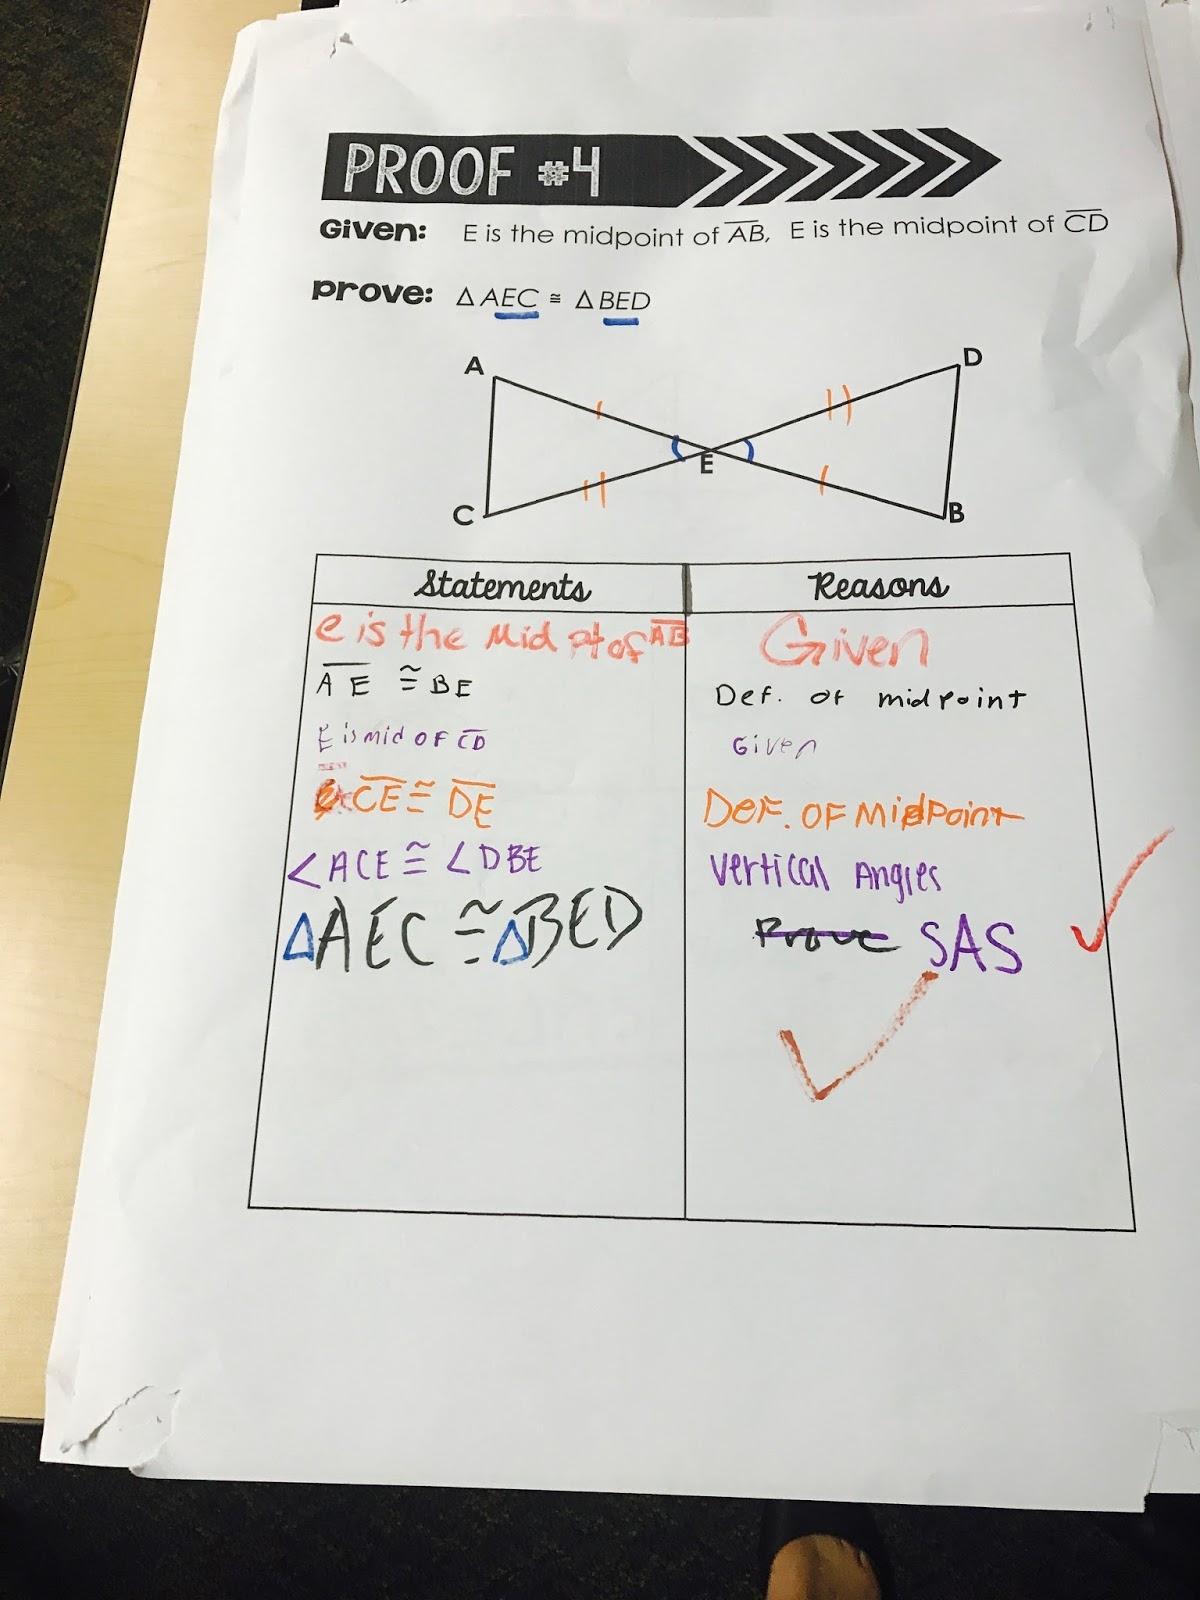 PROOF #4
Given: E is the midpoint of A̅B̅, E is the midpoint of C̅D̅
Prove: △AEC ≅ △BED
A
D
E
C
B
Statements
Reasons
e is the Mid pt of A̅B̅
Given
A̅E̅ ≅ BE
Def. of midpoint
E is mid OF C̅D̅
Given
C̅E̅ ≅ D̅E̅
DEF. OF MidPoint
∠ACE ≅ ∠DBE
Vertical Angles
△AEC ≅ △BED
Prove SAS